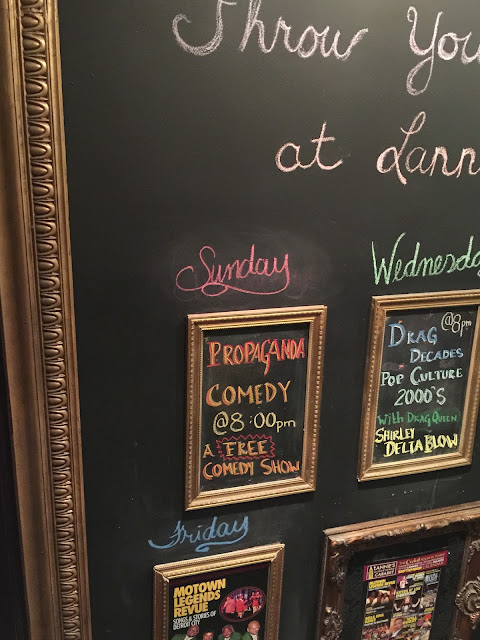 Throw You
at Lann
Sunday
PROPAGANDA
COMEDY
@8:00pm
A FREE
COMEDY SHOW
Wednesday
@8pm
DRAG
DECADES
POP CULTURE
2000'S
With DRAG QUEEN
SHIRLEY
DELTA BLOW
Friday
MOTOWN
LEGENDS
REVUE
SONGS & STORIES OF
DETROIT CITY
LANNIE'S